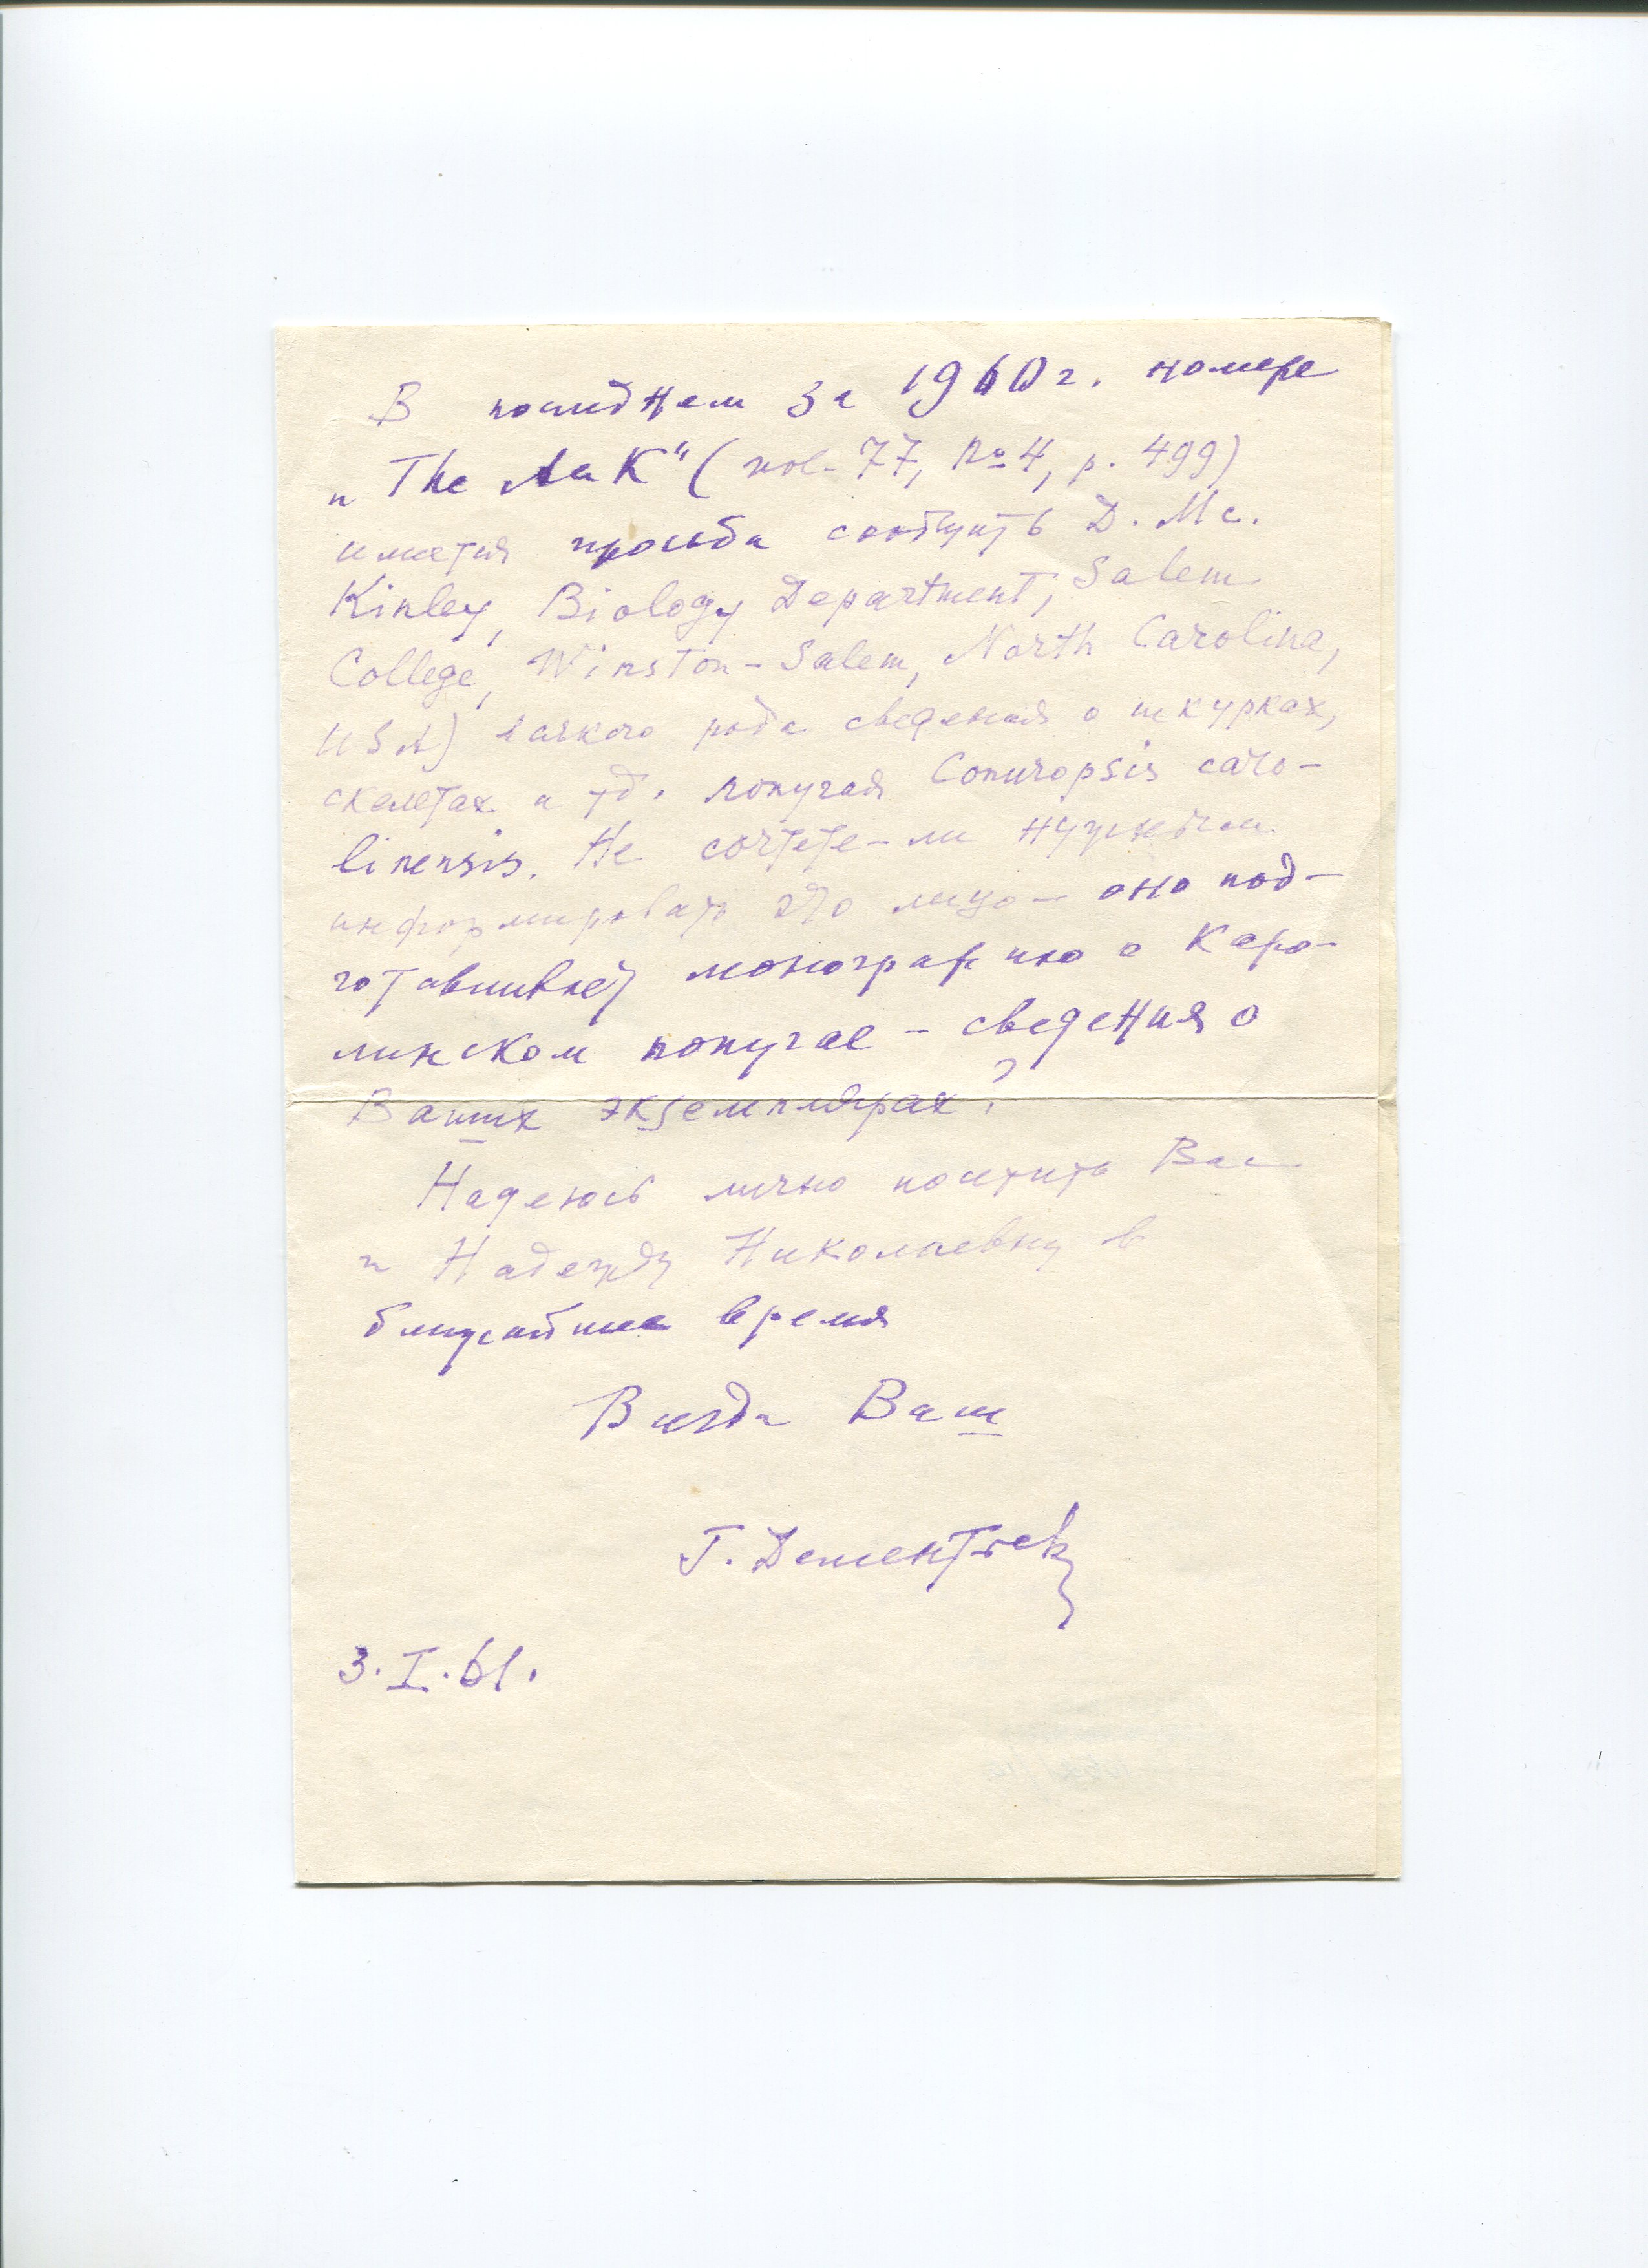 В последнем за 1960 г. номере
„The Auk" (vol. 77, № 4, p. 499)
имеется просьба сообщить D. Mc.
Kinley, Biology Department, Salem
College, Winston-Salem, North Carolina,
USA) всякого рода сведения о шкурках,
скелетах и тд. попугая Conuropsis caro-
linensis. Не сочтете-ли нужным
информировать это лицо – оно под-
готавливает монографию о Каро-
линском попугае – сведения о
Ваших экземплярах?
Надеюсь лично посетить Вас
и Надежду Николаевну в
ближайшее время
Всегда Ваш
Г. Дементьев
3.I.61.